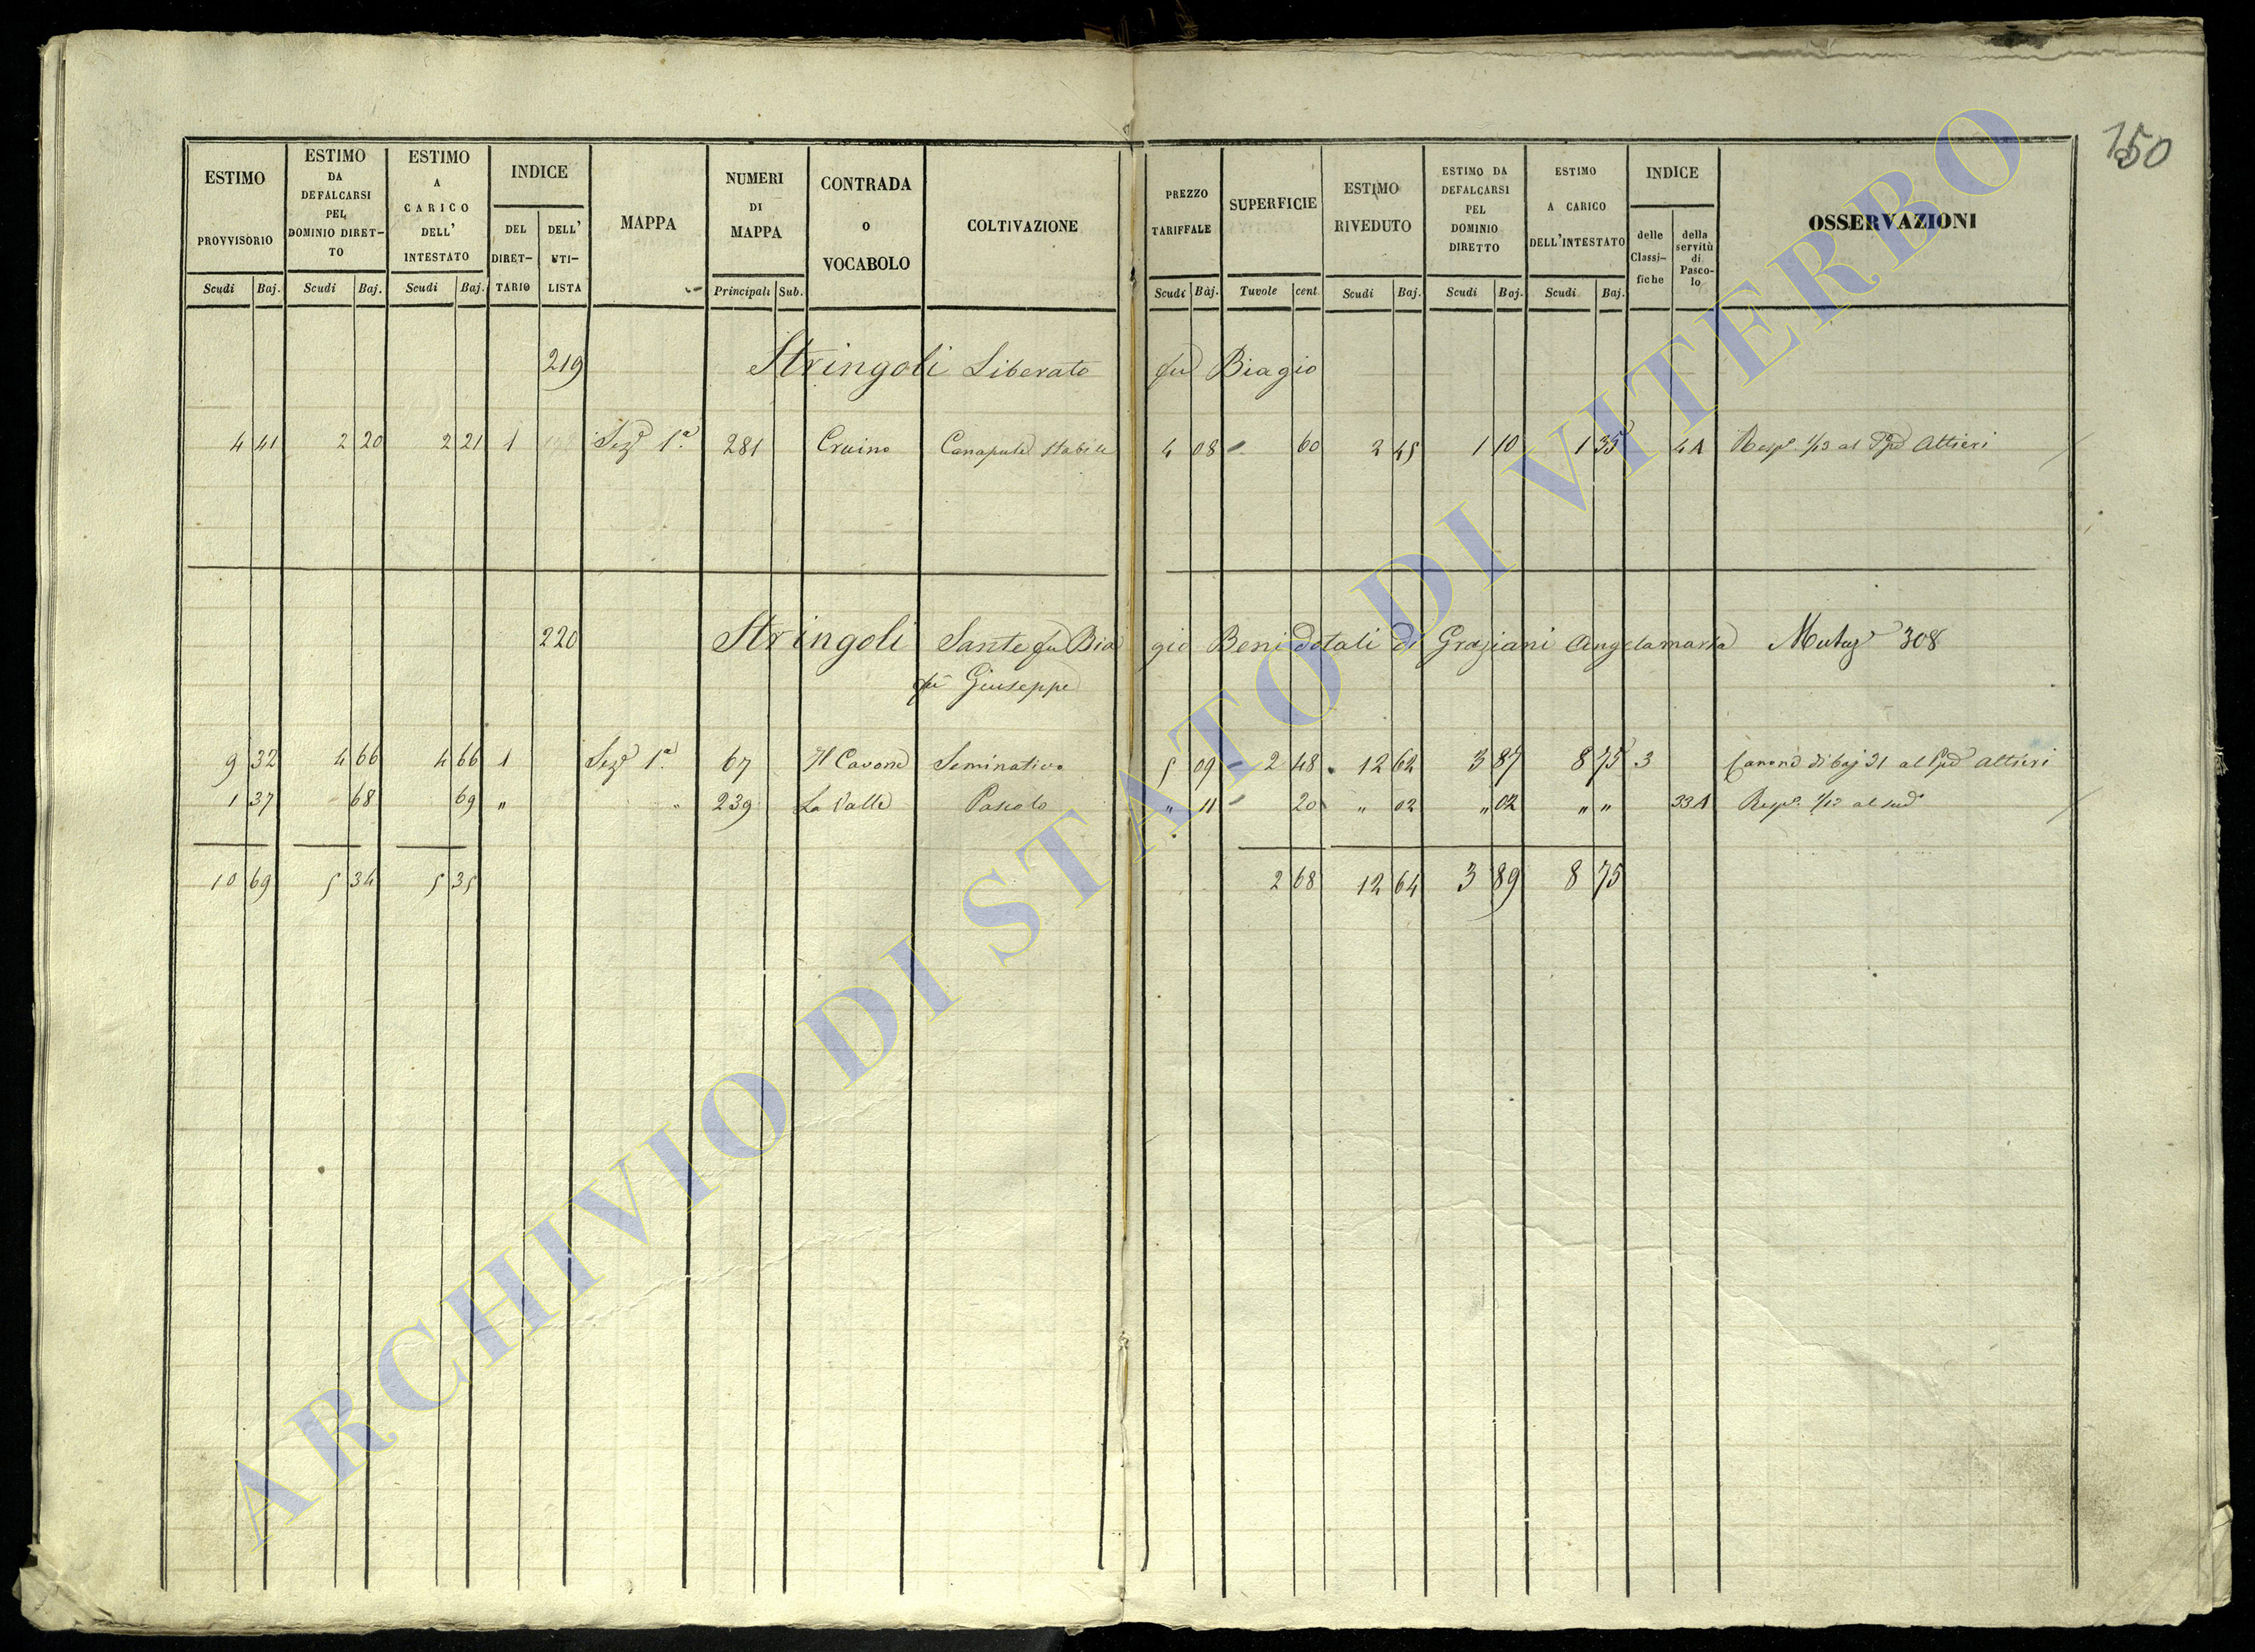 150
ESTIMO PROVVISORIO Scudi Baj.
ESTIMO DA DEFALCARSI PEL DOMINIO DIRET-TO Scudi Baj.
ESTIMO A CARICO DELL' INTESTATO Scudi Baj.
INDICE DEL DIRET-TARIO DELL' UTI-LISTA
MAPPA
NUMERI DI MAPPA Principali Sub.
CONTRADA O VOCABOLO
COLTIVAZIONE
PREZZO TARIFFALE Scudi Baj.
SUPERFICIE Tuvole cent
ESTIMO RIVEDUTO Scudi Baj.
ESTIMO DA DEFALCARSI PEL DOMINIO DIRETTO Scudi Baj.
ESTIMO A CARICO DELL'INTESTATO Scudi Baj.
INDICE delle Classi-fiche della servitù di Pasco-lo
OSSERVAZIONI
219 Stringoli Liberato fu Biagio
4 41 2 20 2 21 1 Sez 1.a 281 Cruine Canapule stabile 4 08 " 60 2 45 1 10 1 35 4A Resp. 1/13 al Altieri
220 Stringoli Sante fu Biagio Beni dotali di Graziani Angelamaria Mutaz 308
fu Giuseppe
9 32 4 66 4 66 1 Sez 1.a 67 Il Cavone Seminativo 5 09 " 2 48 12 62 3 87 8 75 3 Canone di baj 21 al Altieri
1 37 68 69 " " 239 La Valle Pascolo " 11 " 20 " 02 " 02 " " 33A Resp. 1/12 al sud
10 69 5 34 5 35 2 68 12 64 3 89 8 75
ARCHIVIO DI STATO DI VITERBO